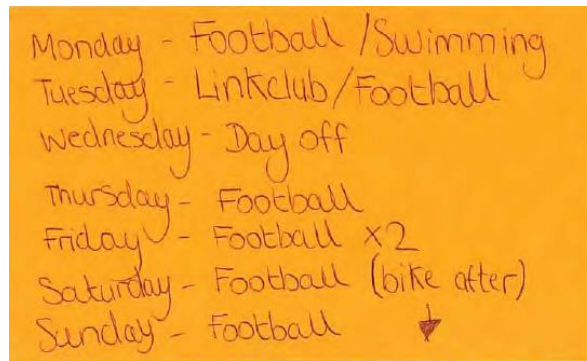 Monday - Football / Swimming
Tuesday - Linkclub / Football
Wednesday - Day off
Thursday - Football
Friday - Football x2
Saturday - Football (bike after)
Sunday - Football